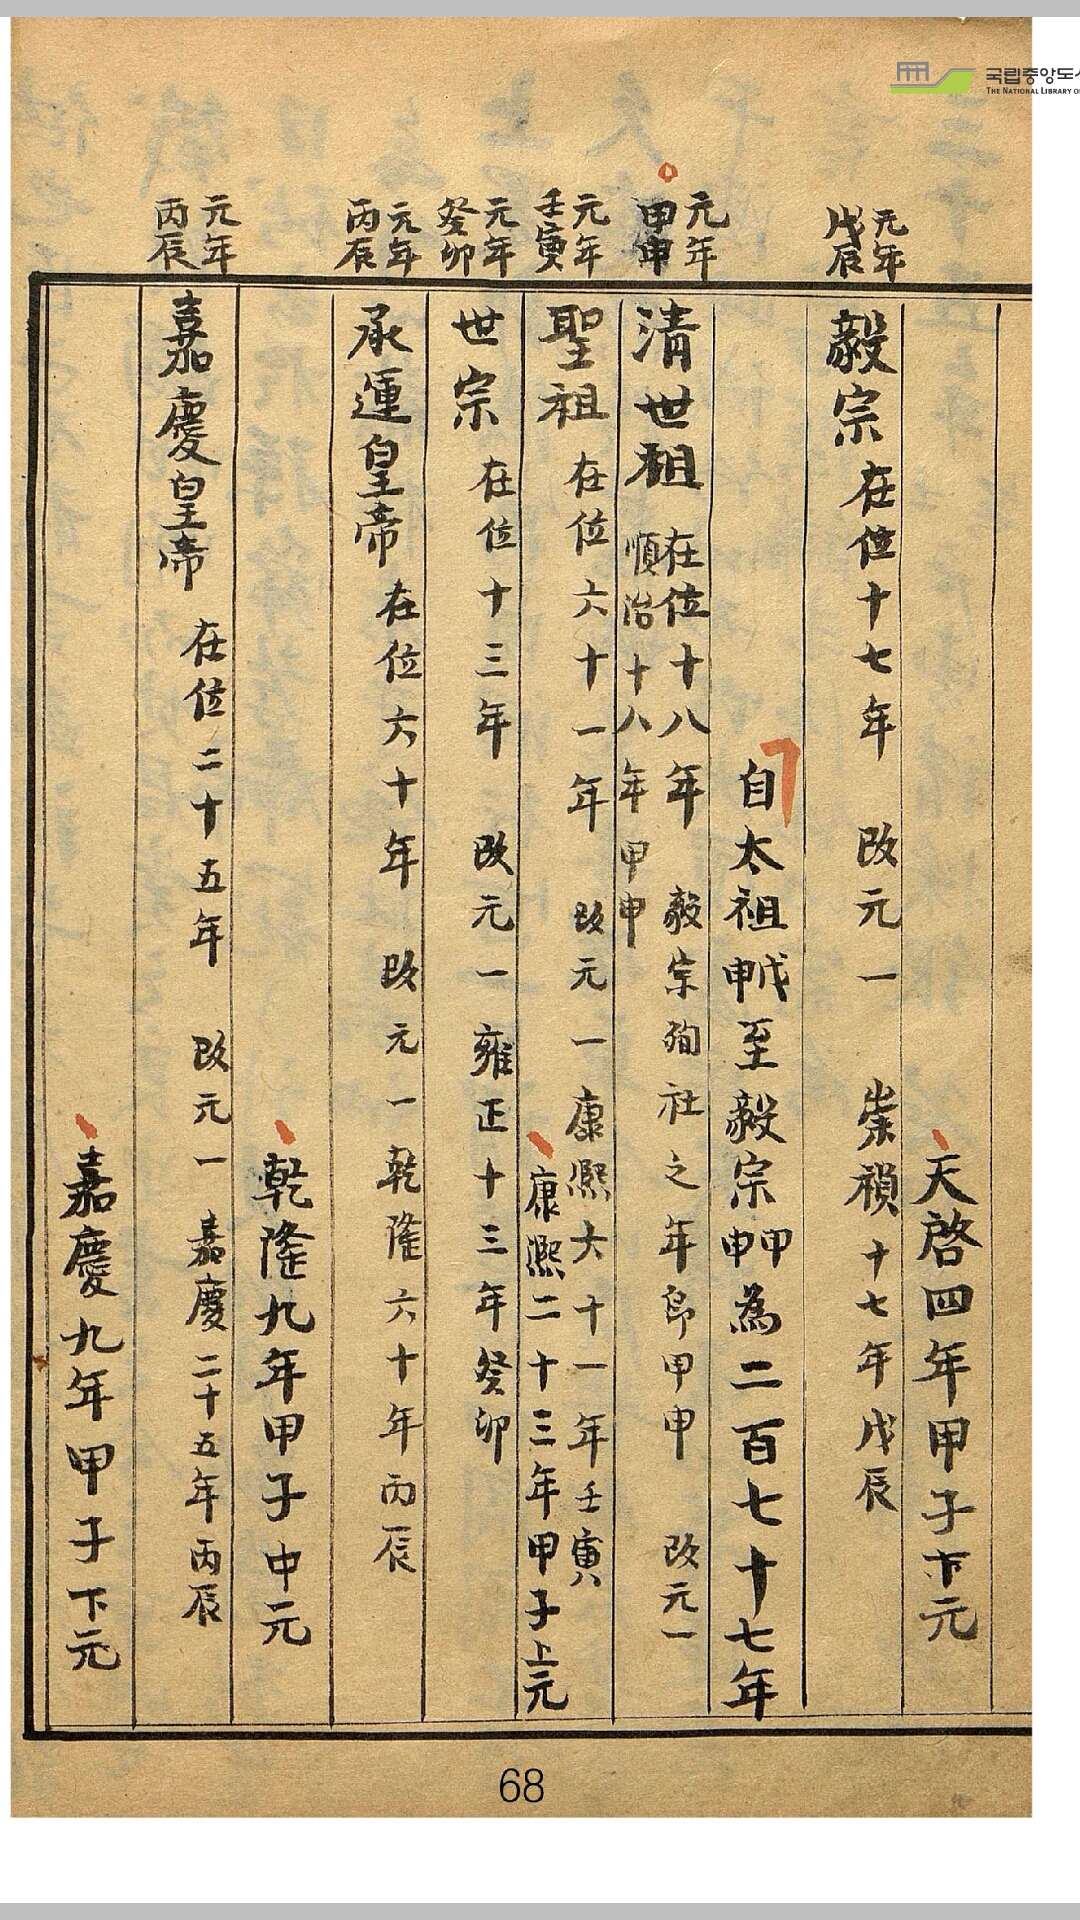 국립중앙도서
THE NATIONAL LIBRARY OF
天啓四年甲子下元
元年戊辰
毅宗 在位十七年 改元一 崇禎十七年戊辰
自太祖戊申至毅宗甲申為二百七十七年
元年甲申
清世祖 在位十八年 毅宗殉社之年卽甲申 改元一
順治十八年甲申
元年壬寅
聖祖 在位六十一年 改元一 康熙六十一年壬寅
康熙二十三年甲子上元
元年癸卯
世宗 在位十三年 改元一 雍正十三年癸卯
元年丙辰
承運皇帝 在位六十年 改元一 乾隆六十年丙辰
乾隆九年甲子中元
元年丙辰
嘉慶皇帝 在位二十五年 改元一 嘉慶二十五年丙辰
嘉慶九年甲子下元
68